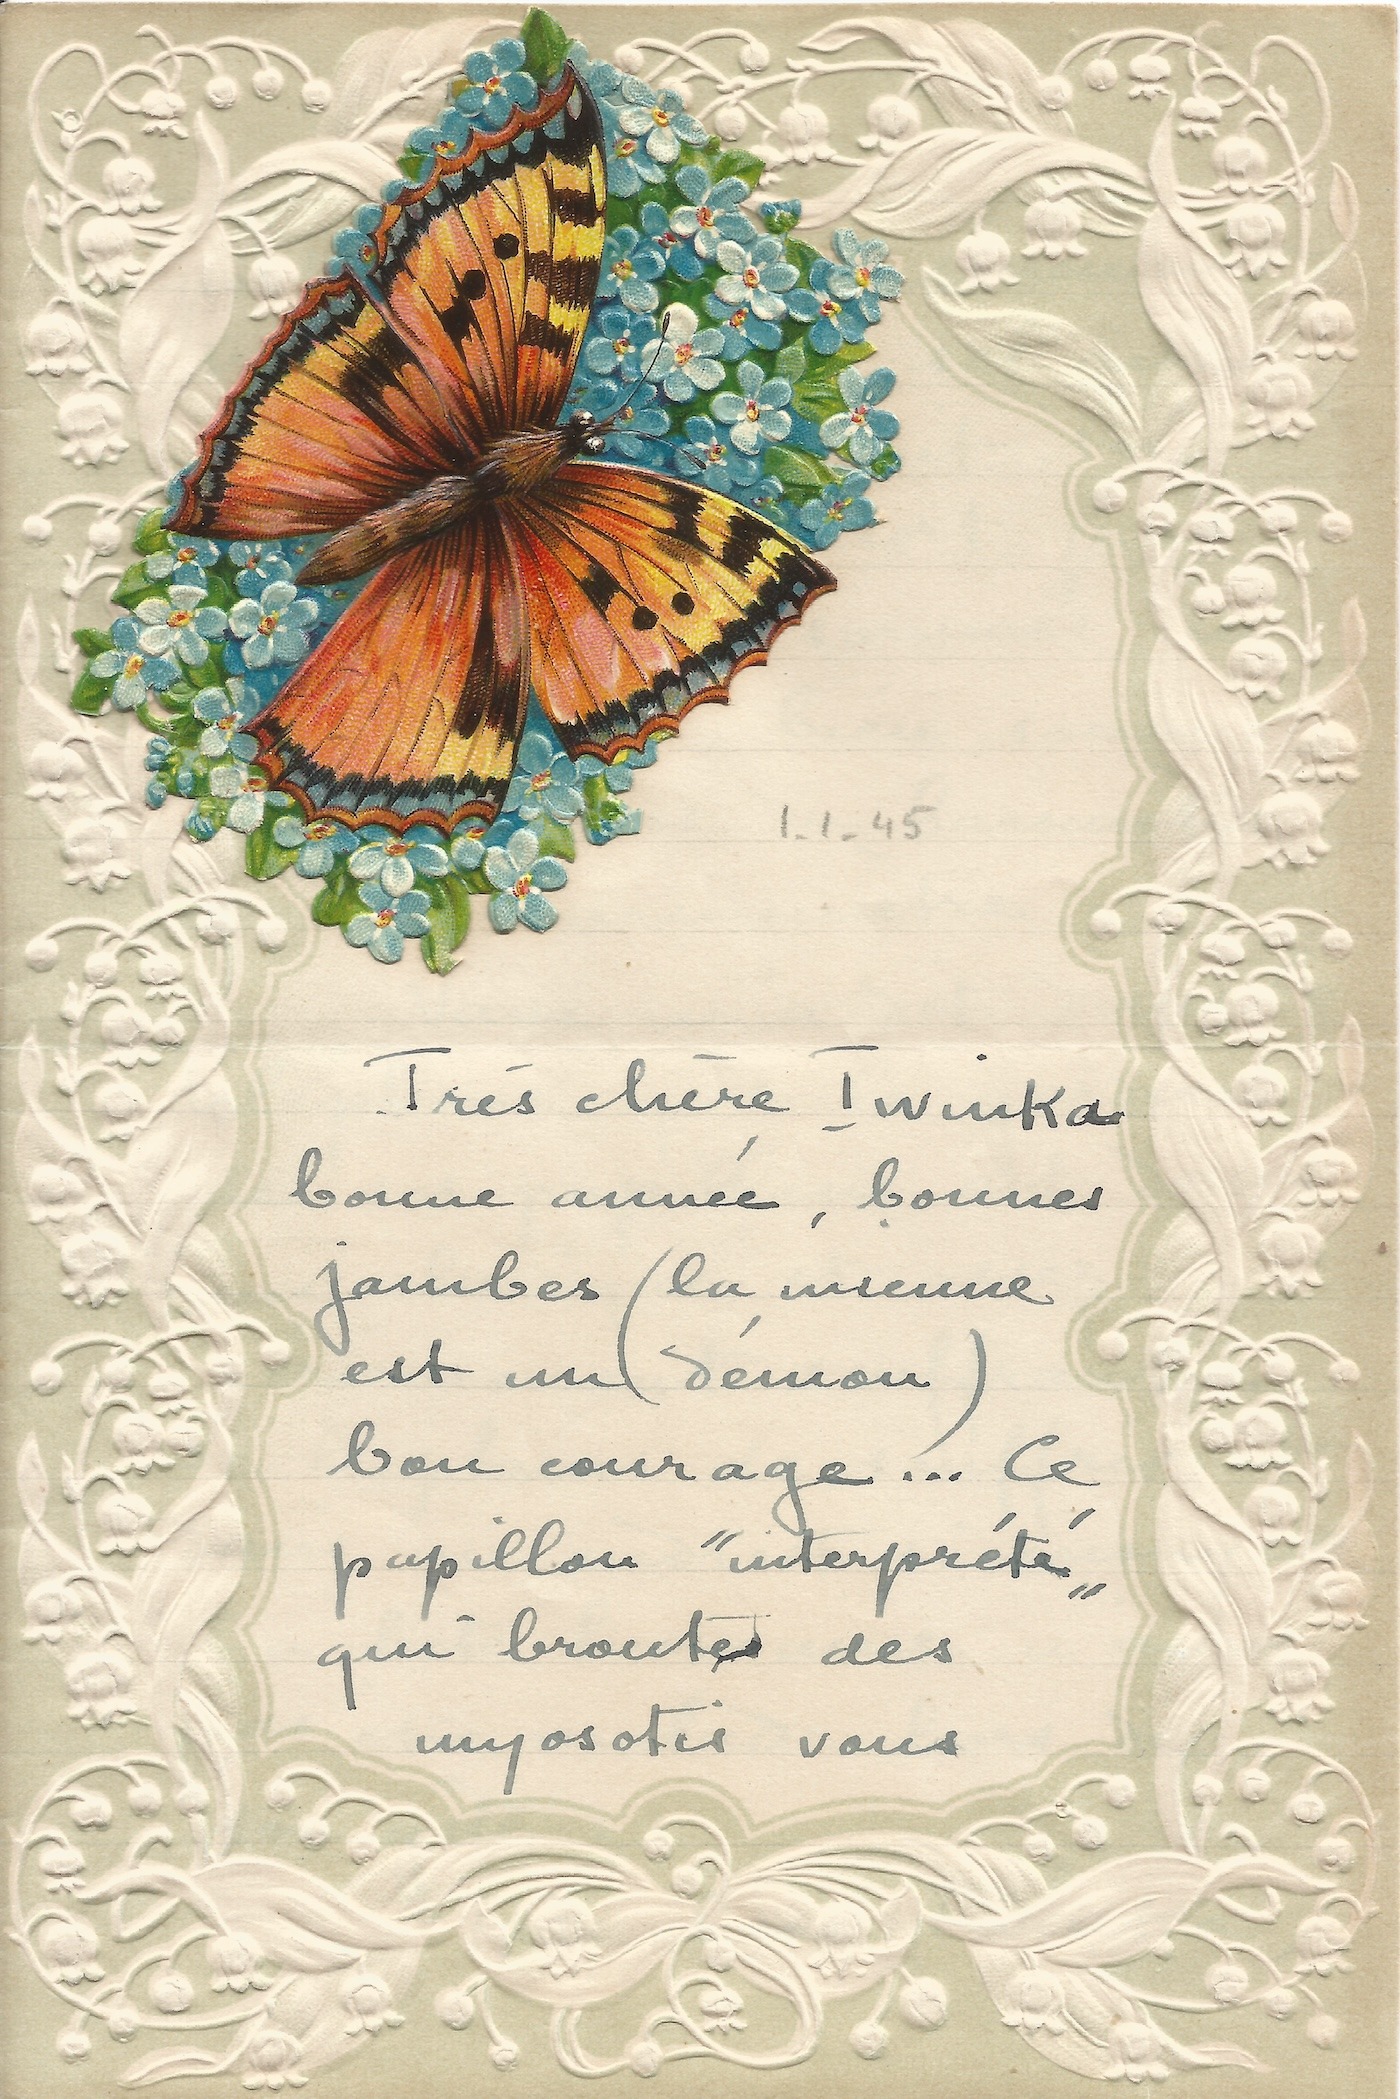 1.1.45
Très chère Iwinka
bonne année, bonnes
jambes (la mienne
est un démon)
bon courage ... Ce
papillon "interprété"
qui broute des
myosotis vous